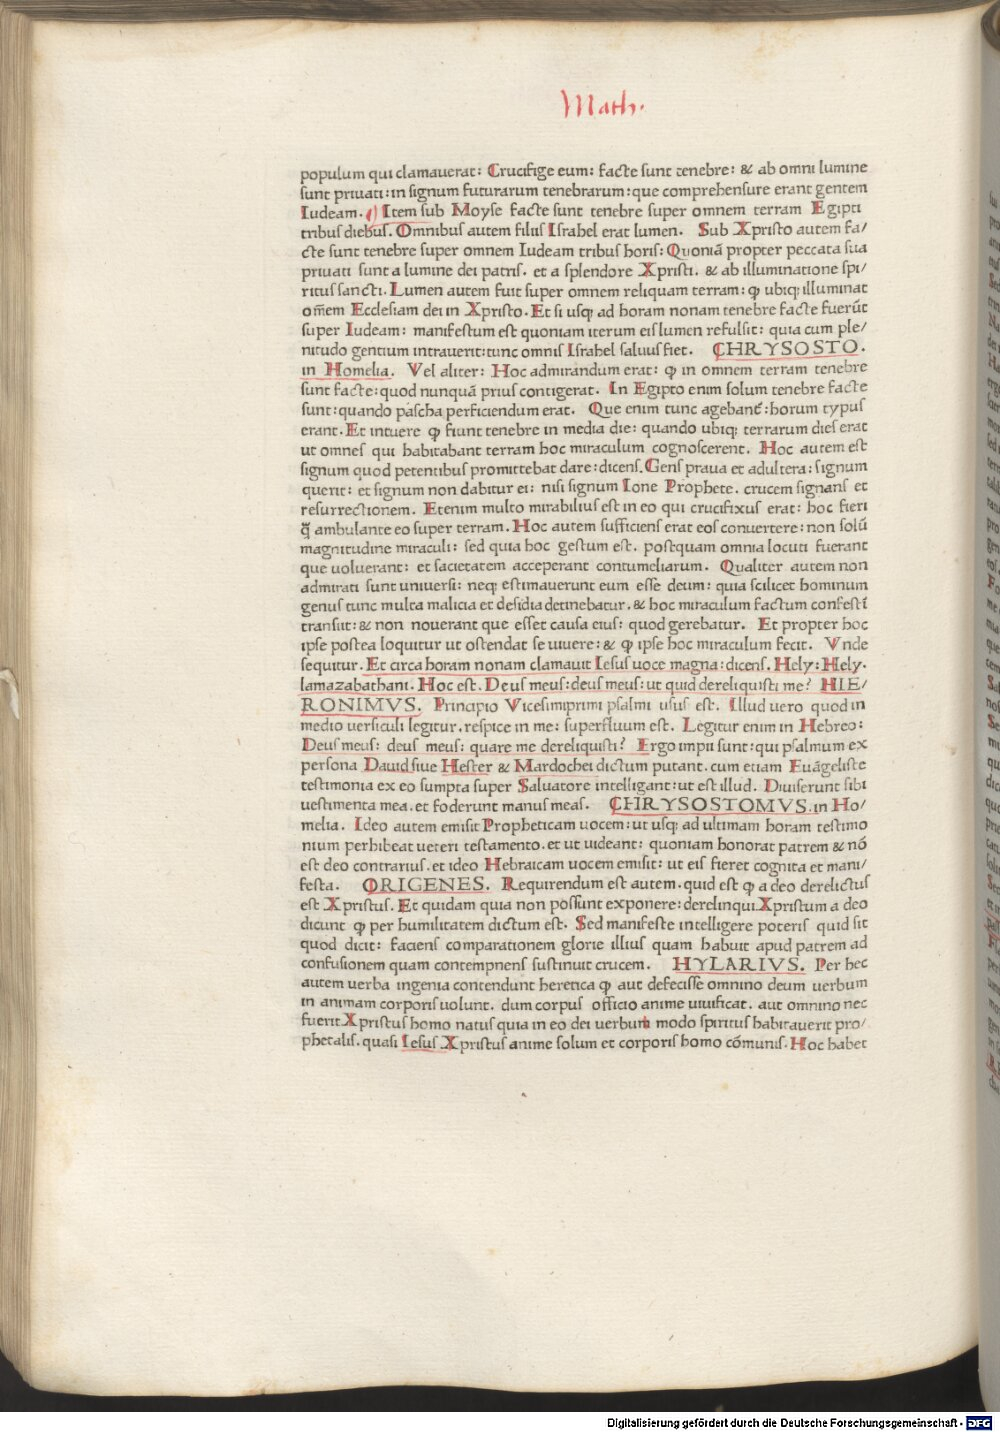 Math.
populum qui clamauerat: Crucifige eum: facte sunt tenebre: & ab omni lumine
sunt priuati: in signum futurarum tenebrarum: que comprehensure erant gentem
Iudeam. Item sub Moyse facte sunt tenebre super omnem terram Egipti
tribus diebus. Omnibus autem filiis Israhel erat lumen. Sub Xpristo autem fa/
cte sunt tenebre super omnem Iudeam tribus horis: Quoniā propter peccata sua
priuati sunt a lumine dei patris. et a splendore Xpristi. & ab illuminatione spi/
ritus sancti. Lumen autem fuit super omnem reliquam terram: ꝙ ubiqꝫ illuminat
om̄em Ecclesiam dei in Xpristo. Et si usqꝫ ad horam nonam tenebre facte fuerūt
super Iudeam: manifestum est quoniam iterum eis lumen refulsit: quia cum ple/
nitudo gentium intrauerit: tunc omnis Israhel saluus fiet. CHRYSOSTO.
in Homelia. Vel aliter: Hoc admirandum erat: ꝙ in omnem terram tenebre
sunt facte: quod nunquā prius contigerat. In Egipto enim solum tenebre facte
sunt: quando pascha perficiendum erat. Que enim tunc agebant᷑: horum typus
erant. Et intuere ꝙ fiunt tenebre in media die: quando ubiqꝫ terrarum dies erat
ut omnes qui habitabant terram hoc miraculum cognoscerent. Hoc autem est
signum quod petentibus promittebat dare: dicens. Gens praua et adultera: signum
querit: et signum non dabitur ei: nisi signum Ione Prophete. crucem signans et
resurrectionem. Etenim multo mirabilius est in eo qui crucifixus erat: hoc fieri
q̄ ambulante eo super terram. Hoc autem sufficiens erat eos conuertere: non solū
magnitudine miraculi: sed quia hoc gestum est. postquam omnia locuti fuerant
que uoluerant: et sacietatem acceperant contumeliarum. Qualiter autem non
admirati sunt uniuersi: neqꝫ estimauerunt eum esse deum: quia scilicet hominum
genus tunc multa malicia et desidia detinebatur. & hoc miraculum factum confestī
transiit: & non nouerant que esset causa eius: quod gerebatur. Et propter hoc
ipse postea loquitur ut ostendat se uiuere: & ꝙ ipse hoc miraculum fecit. Vnde
sequitur. Et circa horam nonam clamauit Iesus uoce magna: dicens. Hely: Hely.
lamazabathani. Hoc est. Deus meus: deus meus: ut quid dereliquisti me? HIE/
RONIMVS. Principio Vicesimiprimi psalmi usus est. Illud uero quod in
medio uersiculi legitur. respice in me: superfluum est. Legitur enim in Hebreo:
Deus meus: deus meus: quare me dereliquisti? Ergo impii sunt: qui psalmum ex
persona Dauid siue Hester & Mardochei dictum putant. cum etiam Euāgeliste
testimonia ex eo sumpta super Saluatore intelligant: ut est illud. Diuiserunt sibi
uestimenta mea. et foderunt manus meas. CHRYSOSTOMVS. in Ho/
melia. Ideo autem emisit Propheticam uocem: ut usqꝫ ad ultimam horam testimo
nium perhibeat ueteri testamento. et ut uideant: quoniam honorat patrem & nō
est deo contrarius. et ideo Hebraicam uocem emisit: ut eis fieret cognita et mani/
festa. ORIGENES. Requirendum est autem. quid est ꝙ a deo derelictus
est Xpristus. Et quidam quia non possunt exponere: derelinqui Xpristum a deo
dicunt ꝙ per humilitatem dictum est. Sed manifeste intelligere poteris quid sit
quod dicit: faciens comparationem glorie illius quam habuit apud patrem ad
confusionem quam contempnens sustinuit crucem. HYLARIVS. Per hec
autem uerba ingenia contendunt heretica ꝙ aut defecisse omnino deum uerbum
in animam corporis uolunt. dum corpus officio anime uiuificat. aut omnino nec
fuerit Xpristus homo natus quia in eo dei uerbum modo spiritus habitauerit pro/
phetalis. quasi Iesus Xpristus anime solum et corporis homo cōmunis. Hoc habet
Digitalisierung gefördert durch die Deutsche Forschungsgemeinschaft - DFG